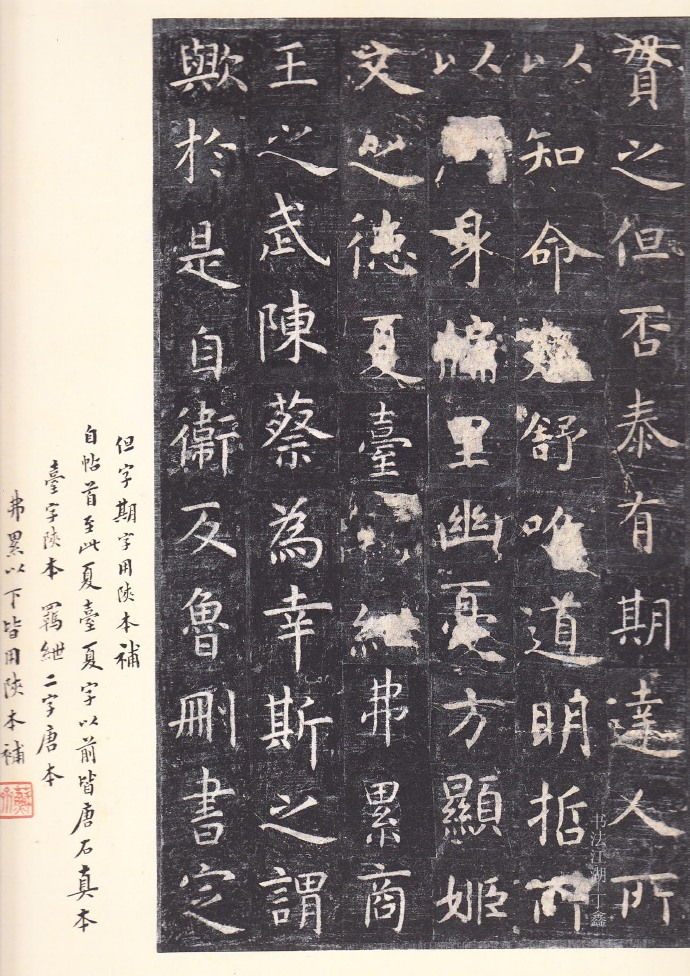 賢之但否泰有期達人所
以知命卷舒唯道明哲所
以周身牖里幽憂方顯姬
文之德夏臺羈紲弗累商
王之武陳蔡為幸斯之謂
歟於是自衛反魯刪書定
但字期字用陝本補
自帖首至此夏臺夏字以前皆唐石真本
臺字陝本 羈紲二字唐本
弗累以下皆用陝本補
书法江湖 丁鑫